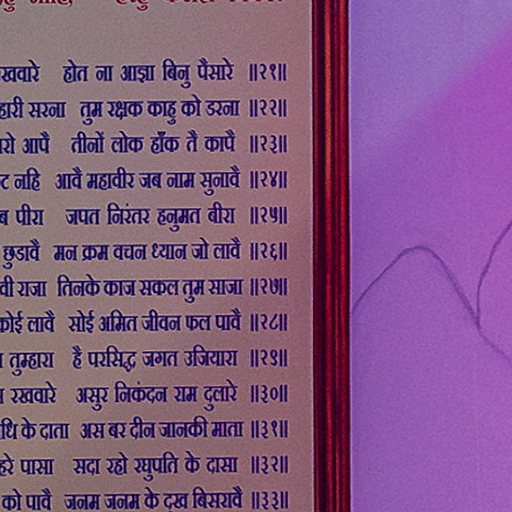 रखवारे होत ना आज्ञा बिनु पैसारे ॥२१॥
सरना तुम रक्षक काहु को डरना ॥२२॥
आपै तीनों लोक हाँक तै कापै ॥२३॥
नहि आवै महावीर जब नाम सुनावै ॥२४॥
पीरा जपत निरंतर हनुमत बीरा ॥२५॥
छुडावै मन क्रम वचन ध्यान जो लावै ॥२६॥
राजा तिनके काज सकल तुम साजा ॥२७॥
कोई लावै सोई अमित जीवन फल पावै ॥२८॥
तुम्हारा है परसिद्ध जगत उजियारा ॥२९॥
रखवारे असुर निकंदन राम दुलारे ॥३०॥
के दाता अस बर दीन जानकी माता ॥३१॥
पासा सदा रहो रघुपति के दासा ॥३२॥
को पावै जनम जनम के दुख बिसरावै ॥३३॥